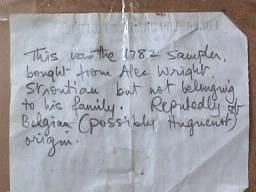 This was the 1782 sampler,
bought from Alec Wright
Strontian but not belonging
to his family. Reputedly of
Belgian (possibly Huguenot)
origin.